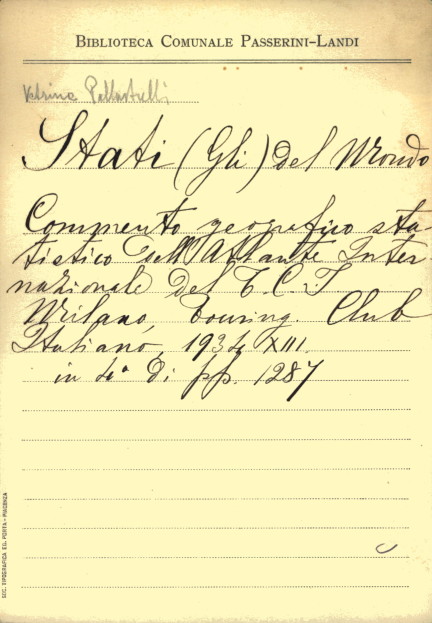 BIBLIOTECA COMUNALE PASSERINI-LANDI
Vetrina
Stati (Gli) del Mondo
Commento geografico sta
tistico dell'Atlante Inter
nazionale del T. C. I.
Milano, Touring Club
Italiano, 1934 XIII.
in 4° di pp. 1287
SOC. TIPOGRAFICA ED. PORTA - PIACENZA